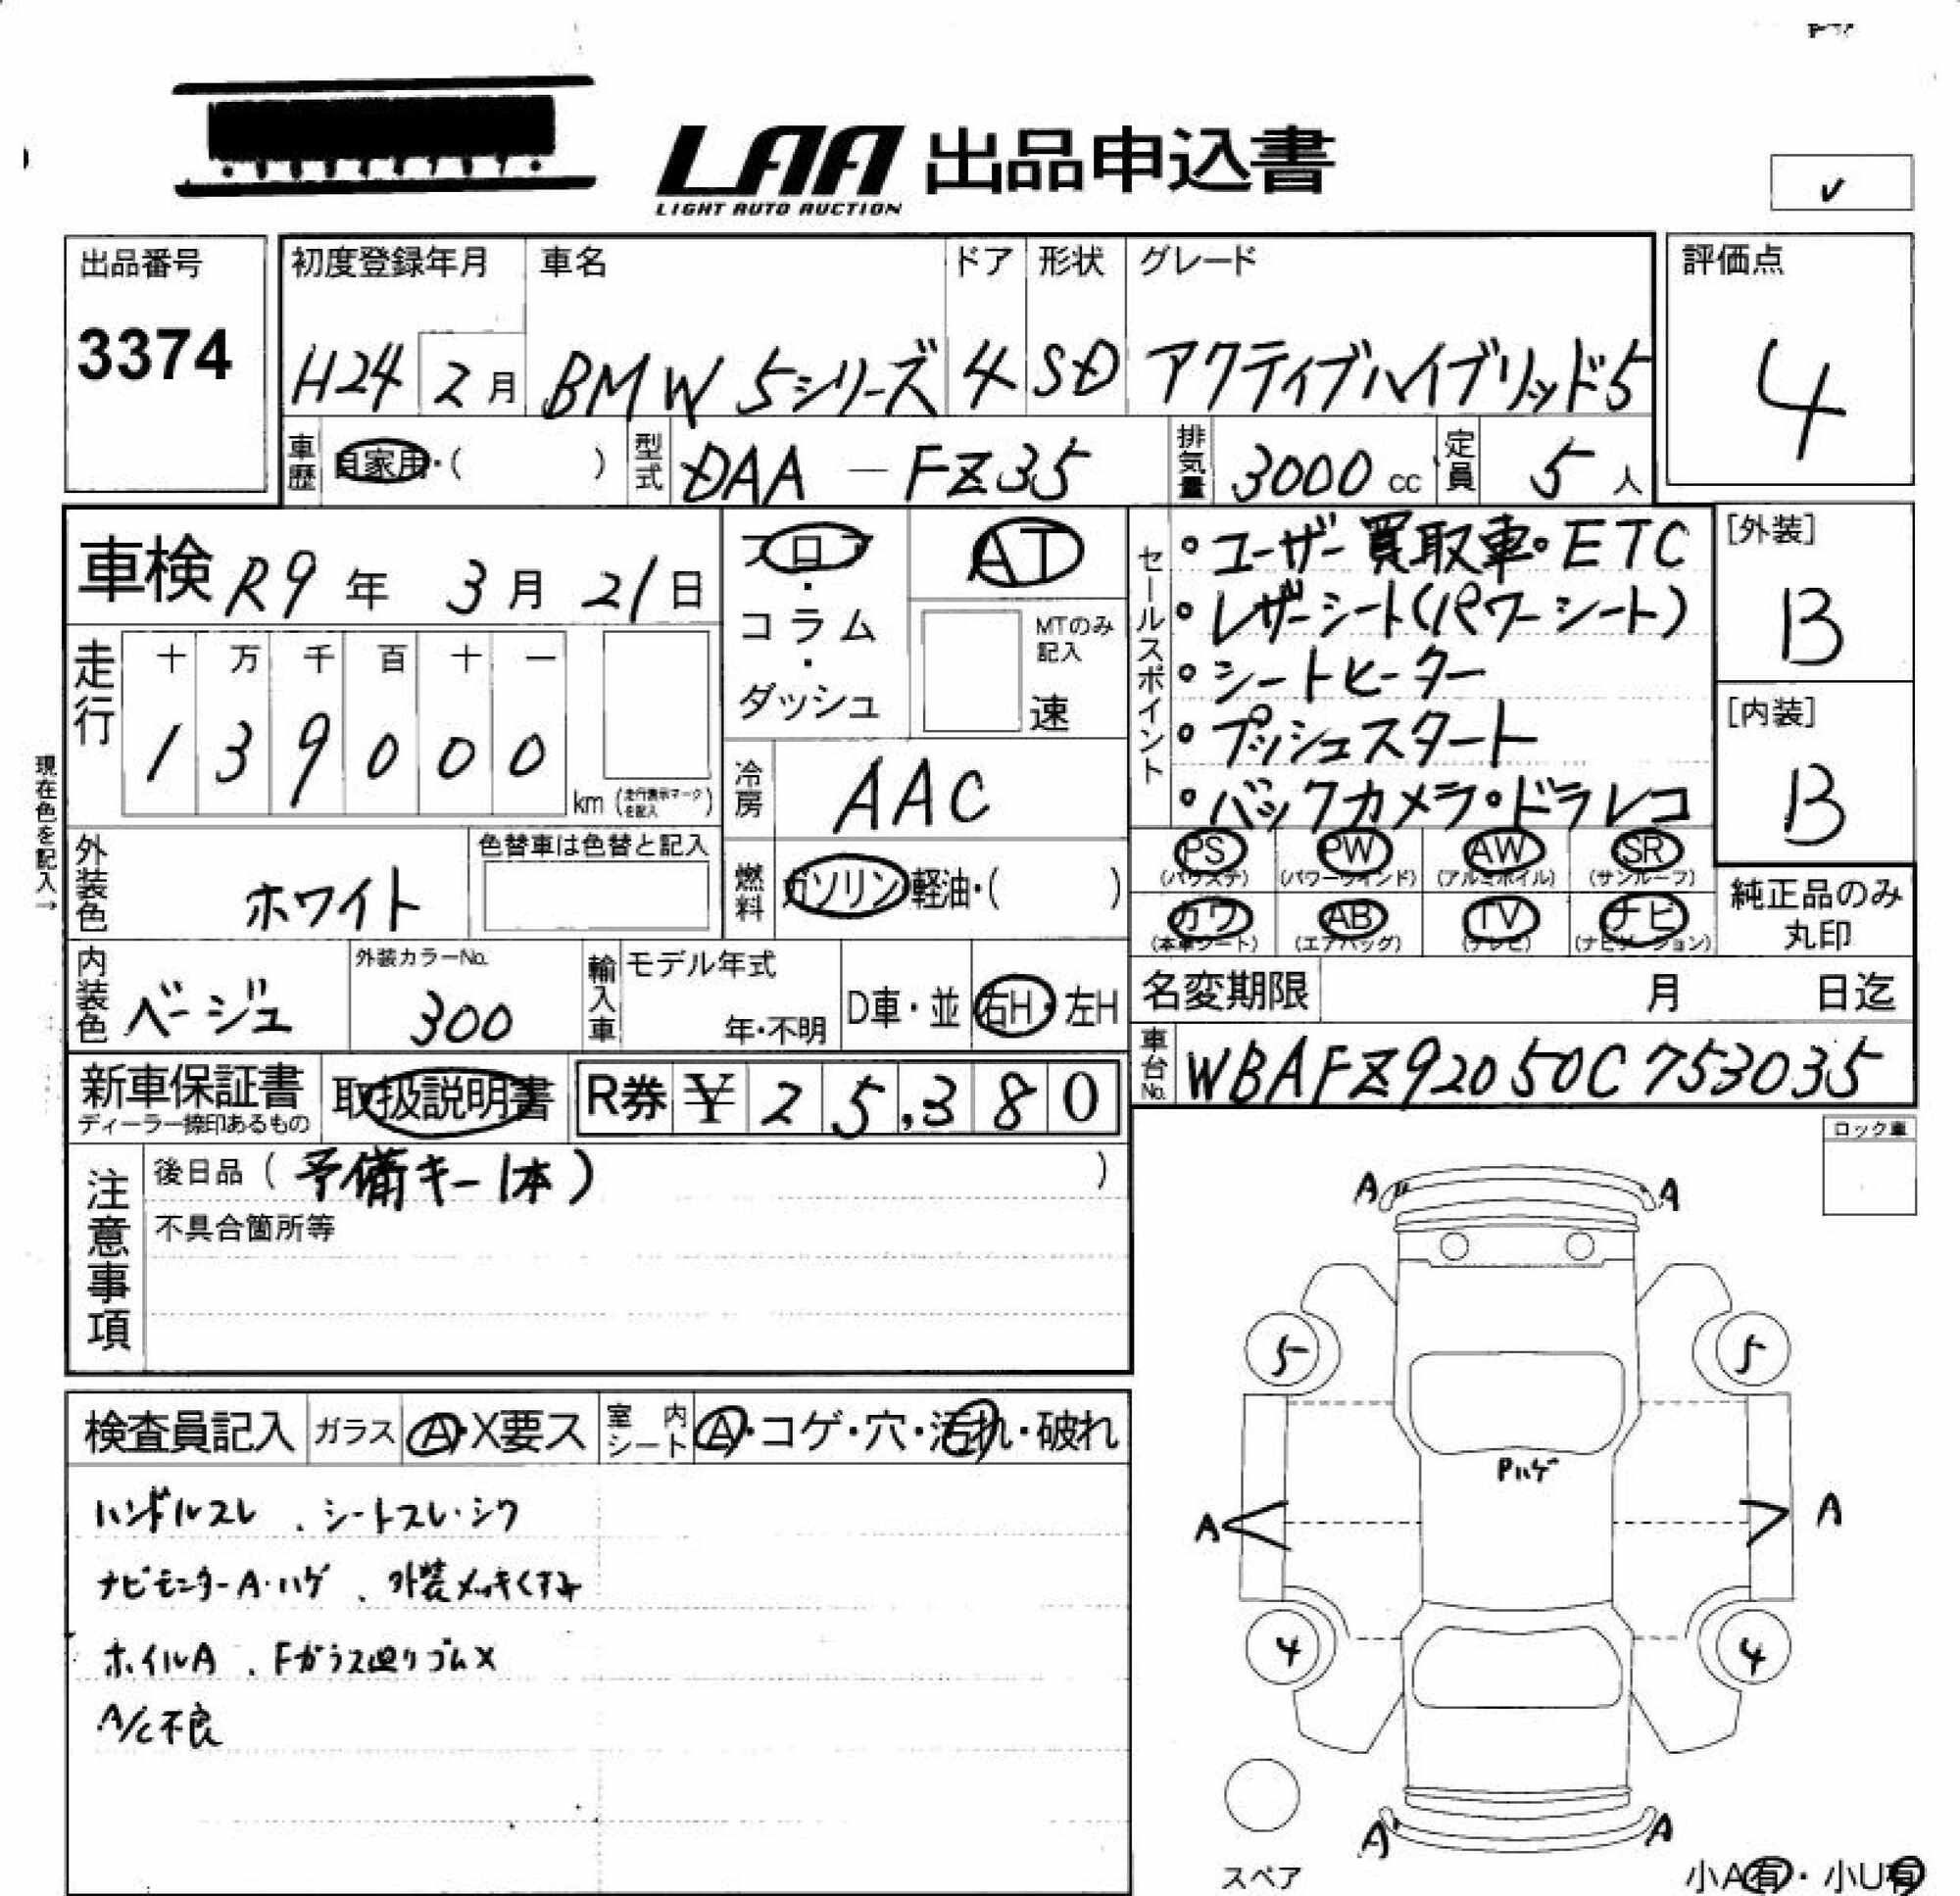 LAA 出品申込書
LIGHT AUTO AUCTION
✓
出品番号
3374
初度登録年月
H24 2月
車名
BMW 5シリーズ
ドア
4
形状
SD
グレード
アクティブハイブリッド5
評価点
4
車歴 自家用・( )
型式 DAA－FZ35
排気量 3000 cc
定員 5人
車検 R9年 3月 21日
フロア・コラム・ダッシュ
AT
MTのみ記入
速
走行
十 万 千 百 十 一
1 3 9 0 0 0
km (走行表示マークを記入)
冷房 AAC
現在色を記入→
外装色 ホワイト
色替車は色替と記入
燃料 ガソリン 軽油・( )
内装色 ベージュ
外装カラーNo.
300
輸入車
モデル年式
年・不明
D車・並
右H・左H
新車保証書
ディーラー捺印あるもの
取扱説明書
R券 ¥ 25,380
セールスポイント
・ユーザー買取車・ETC
・レザーシート(パワーシート)
・シートヒーター
・プッシュスタート
・バックカメラ・ドラレコ
[外装]
B
[内装]
B
PS PW AW SR
(パワステ) (パワーウインド) (アルミホイル) (サンルーフ)
カワ AB TV ナビ
(本革シート) (エアバッグ) (テレビ) (ナビゲーション)
純正品のみ
丸印
名変期限 月 日迄
車台No. WBAFZ92050C753035
注意事項
後日品 (予備キー1本)
不具合箇所等
ロック車
検査員記入
ガラス A・X要ス
室内シート A・コゲ・穴・汚れ・破れ
ハンドルスレ、シートスレ・シワ
ナビモニターA・ハゲ、外装メッキくすみ
ホイルA、Fガラス廻りゴムX
A/C不良
A A
5 5
Pハゲ
A A
4 4
A A
スペア
小A有・小U有